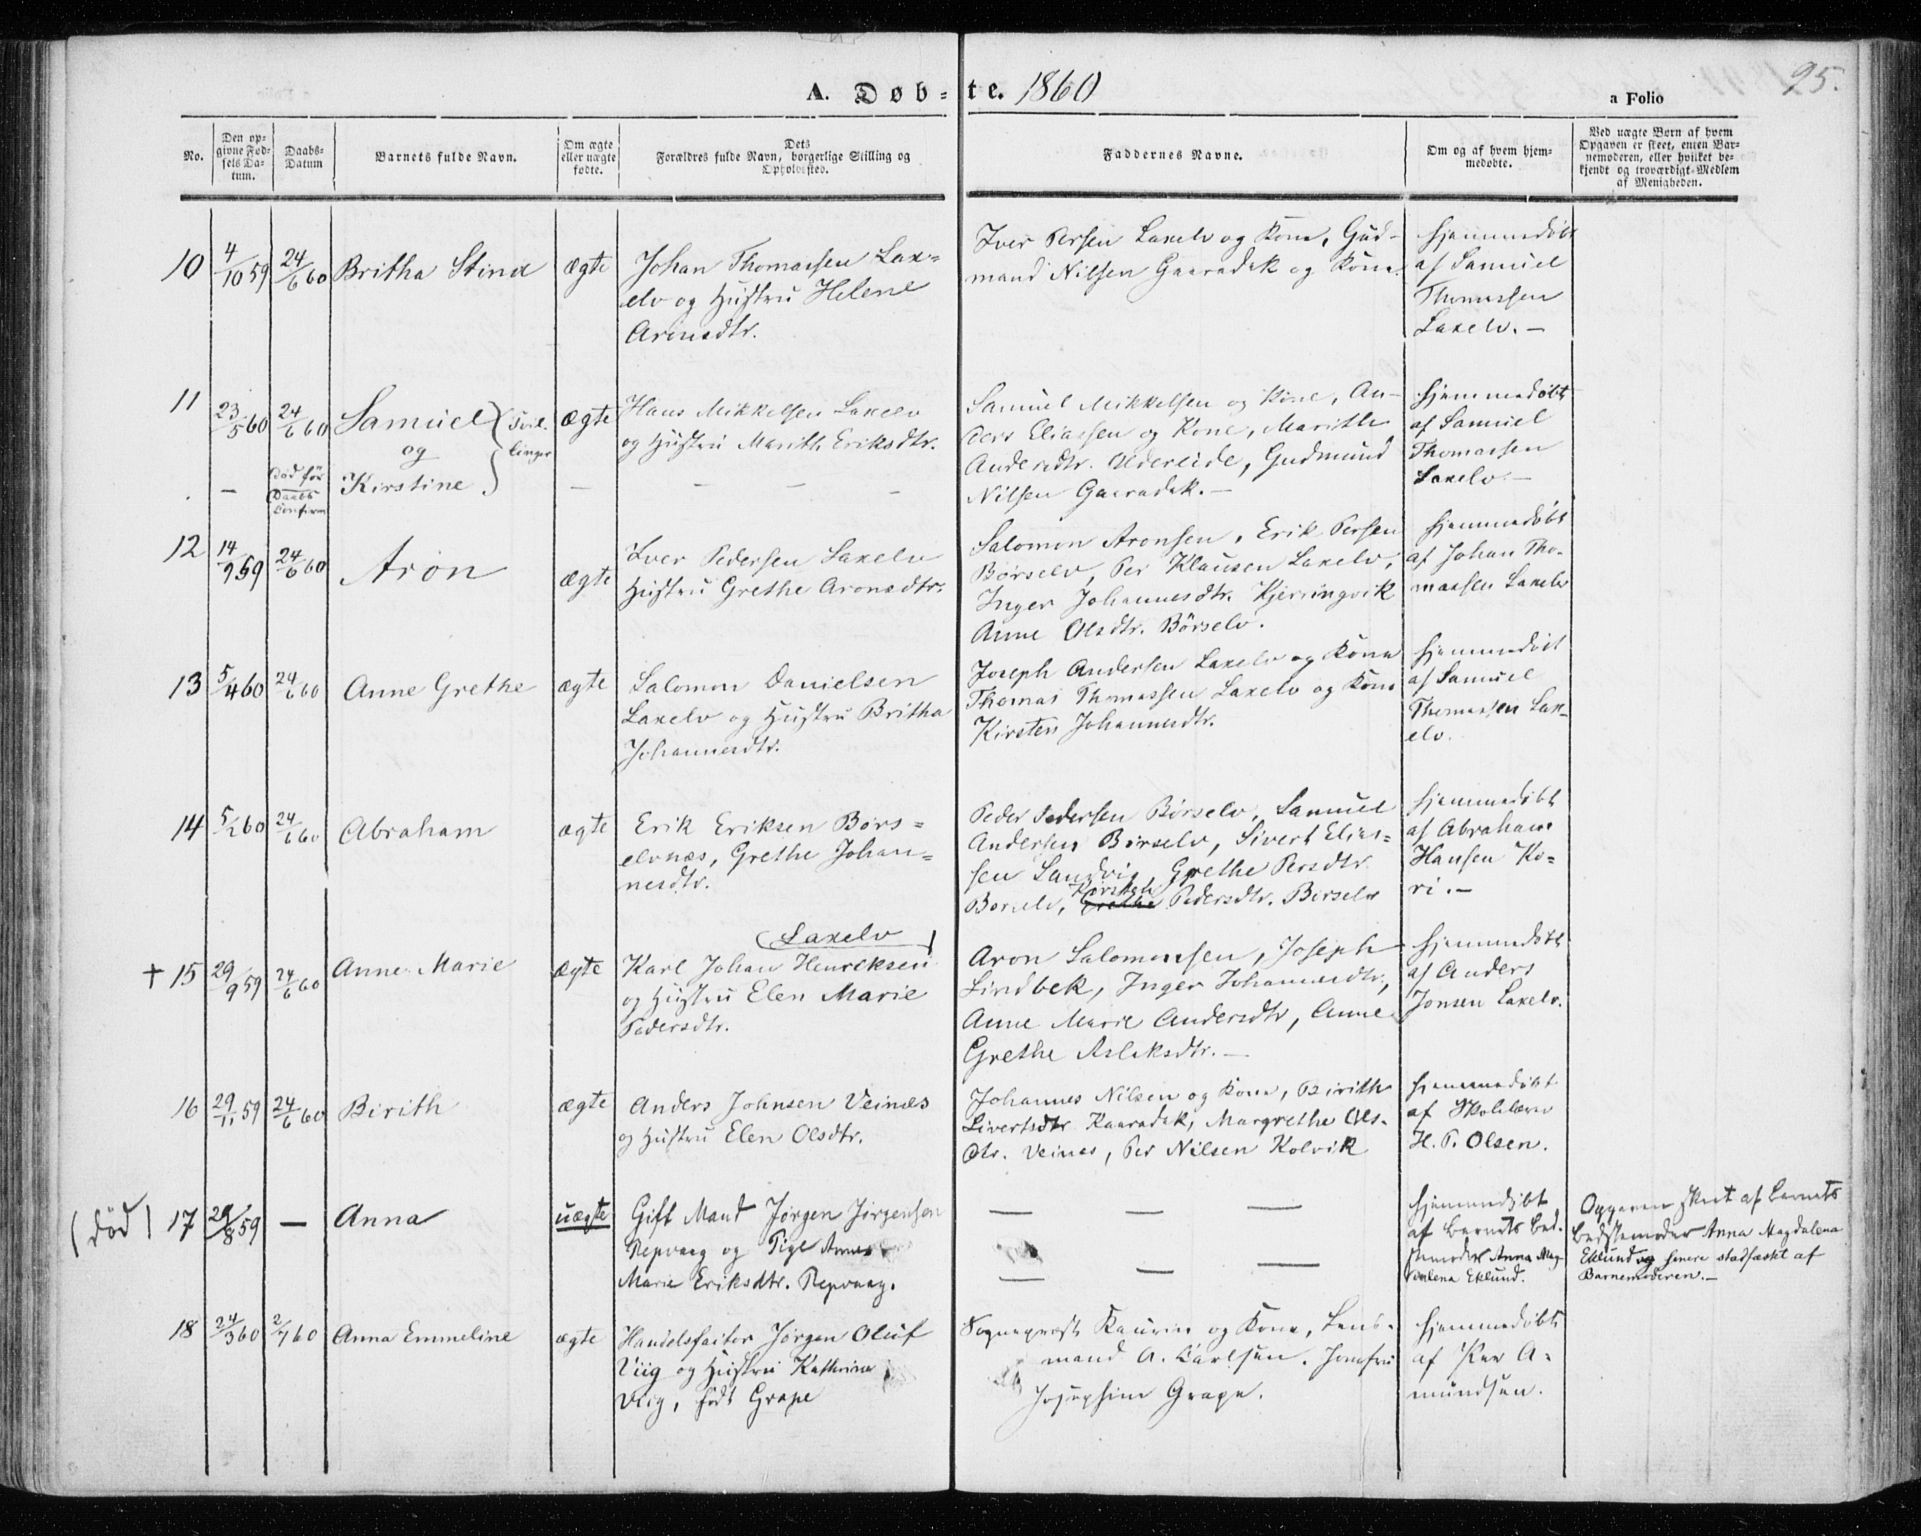 A. Døb-te. 1860
a Folio
95.
No.
Den op-
givne Fød-
sels Da-
tum.
Daabs-
Datum
Barnets fulde Navn.
Om ægte
eller uægte
fødte.
Dets
Forældres fulde Navn, borgerlige Stilling og
Opholdssted.
Faddernes Navne.
Om og af hvem hjem-
medøbte.
Ved uægte Børn af hvem
Opgaven er skeet, enten Bar-
nemoderen, eller hvilket be-
kjendt og troværdigt Medlem
af Menigheden.
10
4/10 59
24/6 60
Britha Stina
ægte
Johan Thomassen Lax-
elv og Hustru Helene
Aronsdtr.
Iver Persen Laxelv og Kone, Gud-
mand Nilsen Gaaradak og Kone
hjemmedøbt
af Samuel
Thomassen
Laxelv. -
11
23/5 60
24/6 60
Samuel
og
Kirstine
Tvil-
linger
ægte
Hans Mikkelsen Laxelv
og Hustru Marith Eriksdtr.
Samuel Mikkelsen og Kone, An-
ders Eliassen og Kone, Marithe
Andersdtr. Oldereide, Gudmund
Nilsen Gaaradak. -
hjemmedøbt
af Samuel
Thomassen
Laxelv. -
-
død før
Daabs
Confirm
- - - -
12
14/9 59
24/6 60
Aron
ægte
Iver Pedersen Laxelv
Hustru Grethe Aronsdtr.
Salomon Aronsen, Erik Persen
Børselv, Per Klausen Laxelv,
Inger Johannesdtr. Kjerringvik
Anne Olsdtr. Børselv.
hjemmedøbt
af Johan Tho-
massen Laxelv
13
5/4 60
24/6 60
Anne Grethe
ægte
Salomon Danielsen
Laxelv og Hustru Britha
Johannesdtr.
Joseph Andersen Laxelv og Kone
Thomas Thomassen Laxelv og Kone
Kirsten Johannesdtr.
hjemmedøbt
af Samuel
Thomassen Lax-
elv.
14
5/1 60
24/6 60
Abraham
ægte
Erik Eriksen Børs-
elvnæs, Grethe Johan-
nesdtr.
Peder Pedersen Børselv, Samuel
Andersen Børselv, Sivert Elias-
sen Sandvig, Grethe Persdtr
Børselv, Kirsten Grethe Pedersdtr. Børselv
hjemmedøbt
af Abraham
Hansen Ko-
ri. -
+ 15
29/9 59
24/6 60
Anne Marie
ægte
Laxelv
Karl Johan Henriksen
og Hustru Elen Marie
Pedersdtr.
Aron Salomonsen, Joseph
Lindbek, Inger Johannesdtr,
Anne Marie Andersdtr, Anne
Grethe Aslaksdtr. -
hjemmedøbt
af Anders
Jonsen Laxelv.
16
29/11 59
24/6 60
Birith
ægte
Anders Johnsen Veinæs
og Hustru Elen Olsdtr.
Johannes Nilsen og Kone, Birith
Sivertsdtr Kaaradak, Margrethe Ols-
dtr. Veines, Per Nilsen Kolvik
hjemmedøbt
af Skolelærer
H. P. Olsen.
(død) 17
29/8 59
-
Anna
uægte
Gift Mand Jørgen Jørgensen
Repvaag og Pige Anne
Marie Eriksdtr. Repvaag.
- - -
- - -
hjemmedøbt
af Barnets Bed-
stemoder Anna Mag-
dalena Eklund.
Opgaven skeet af Barnets
Bedstemoder Anna Magdalena
Eklund og senere stadfæstet af
Barnemoderen. -
18
24/3 60
2/7 60
Anna Emmeline
ægte
Handelsfactor Jørgen Oluf
Viig og Hustru Kathrine
Viig, født Grape
Sognepræst Kaurin og Kone, Lens-
mand A. Carlsen. Jomfru
Josephine Grape.
hjemmedøbt
af Per A-
mundsen.